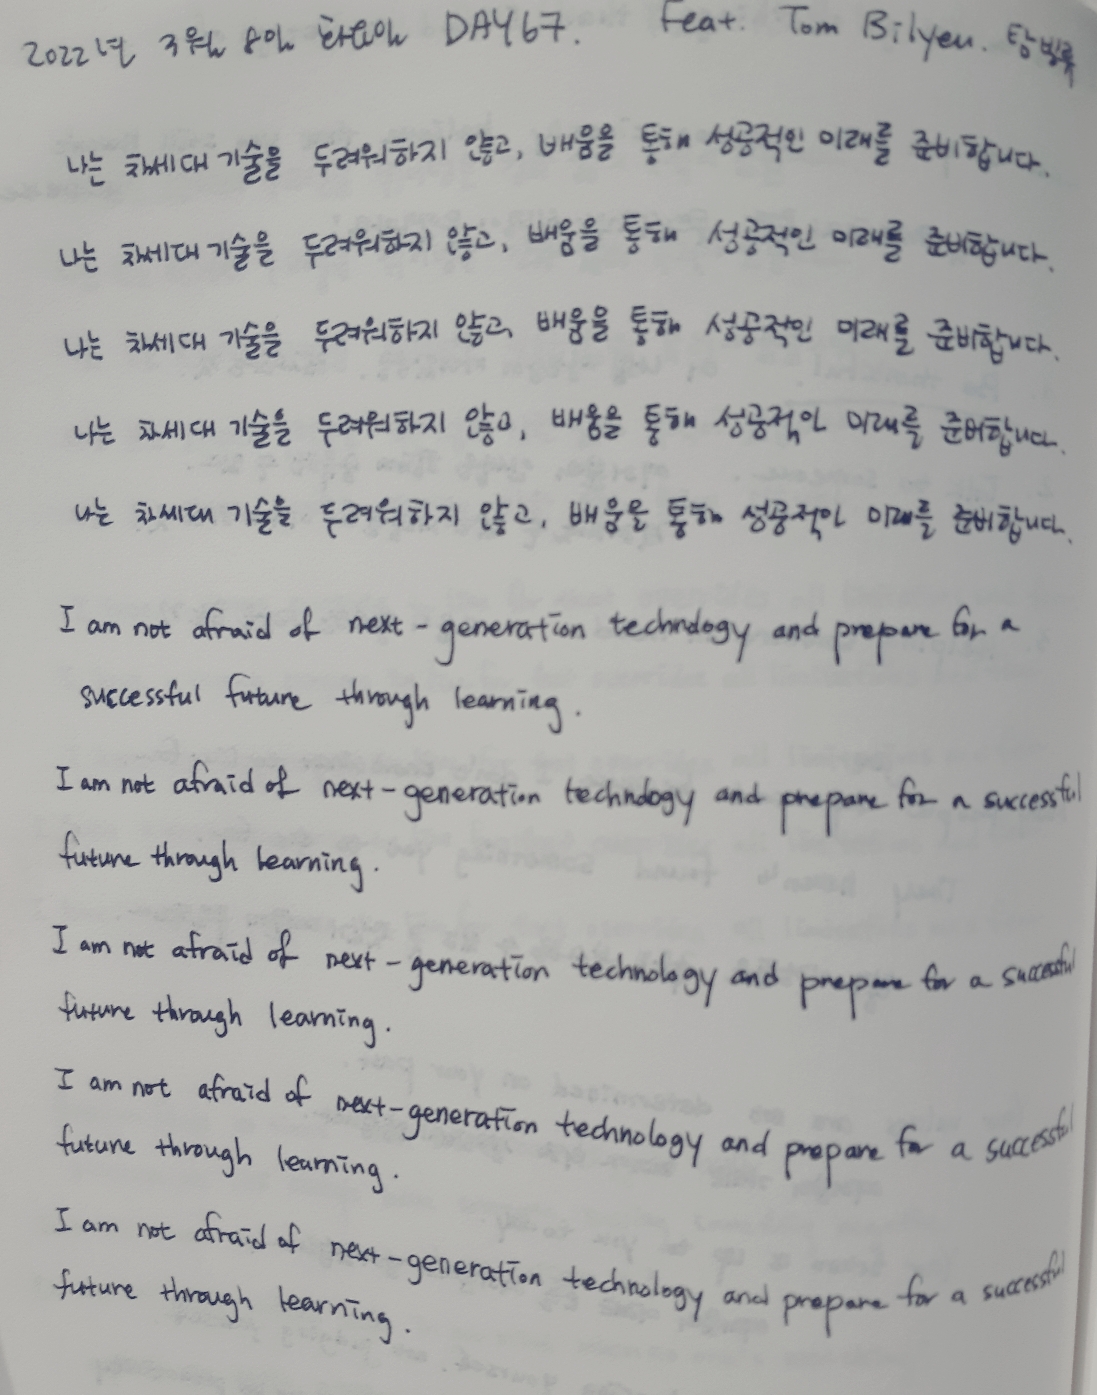 2022년 3월 8일 화요일 DAY67. Feat. Tom Bilyeu. 탐 빌류
나는 차세대 기술을 두려워하지 않고, 배움을 통해 성공적인 미래를 준비합니다.
나는 차세대 기술을 두려워하지 않고, 배움을 통해 성공적인 미래를 준비합니다.
나는 차세대 기술을 두려워하지 않고, 배움을 통해 성공적인 미래를 준비합니다.
나는 차세대 기술을 두려워하지 않고, 배움을 통해 성공적인 미래를 준비합니다.
나는 차세대 기술을 두려워하지 않고, 배움을 통해 성공적인 미래를 준비합니다.
I am not afraid of next-generation technology and prepare for a
successful future through learning.
I am not afraid of next-generation technology and prepare for a successful
future through learning.
I am not afraid of next-generation technology and prepare for a successful
future through learning.
I am not afraid of next-generation technology and prepare for a successful
future through learning.
I am not afraid of next-generation technology and prepare for a successful
future through learning.